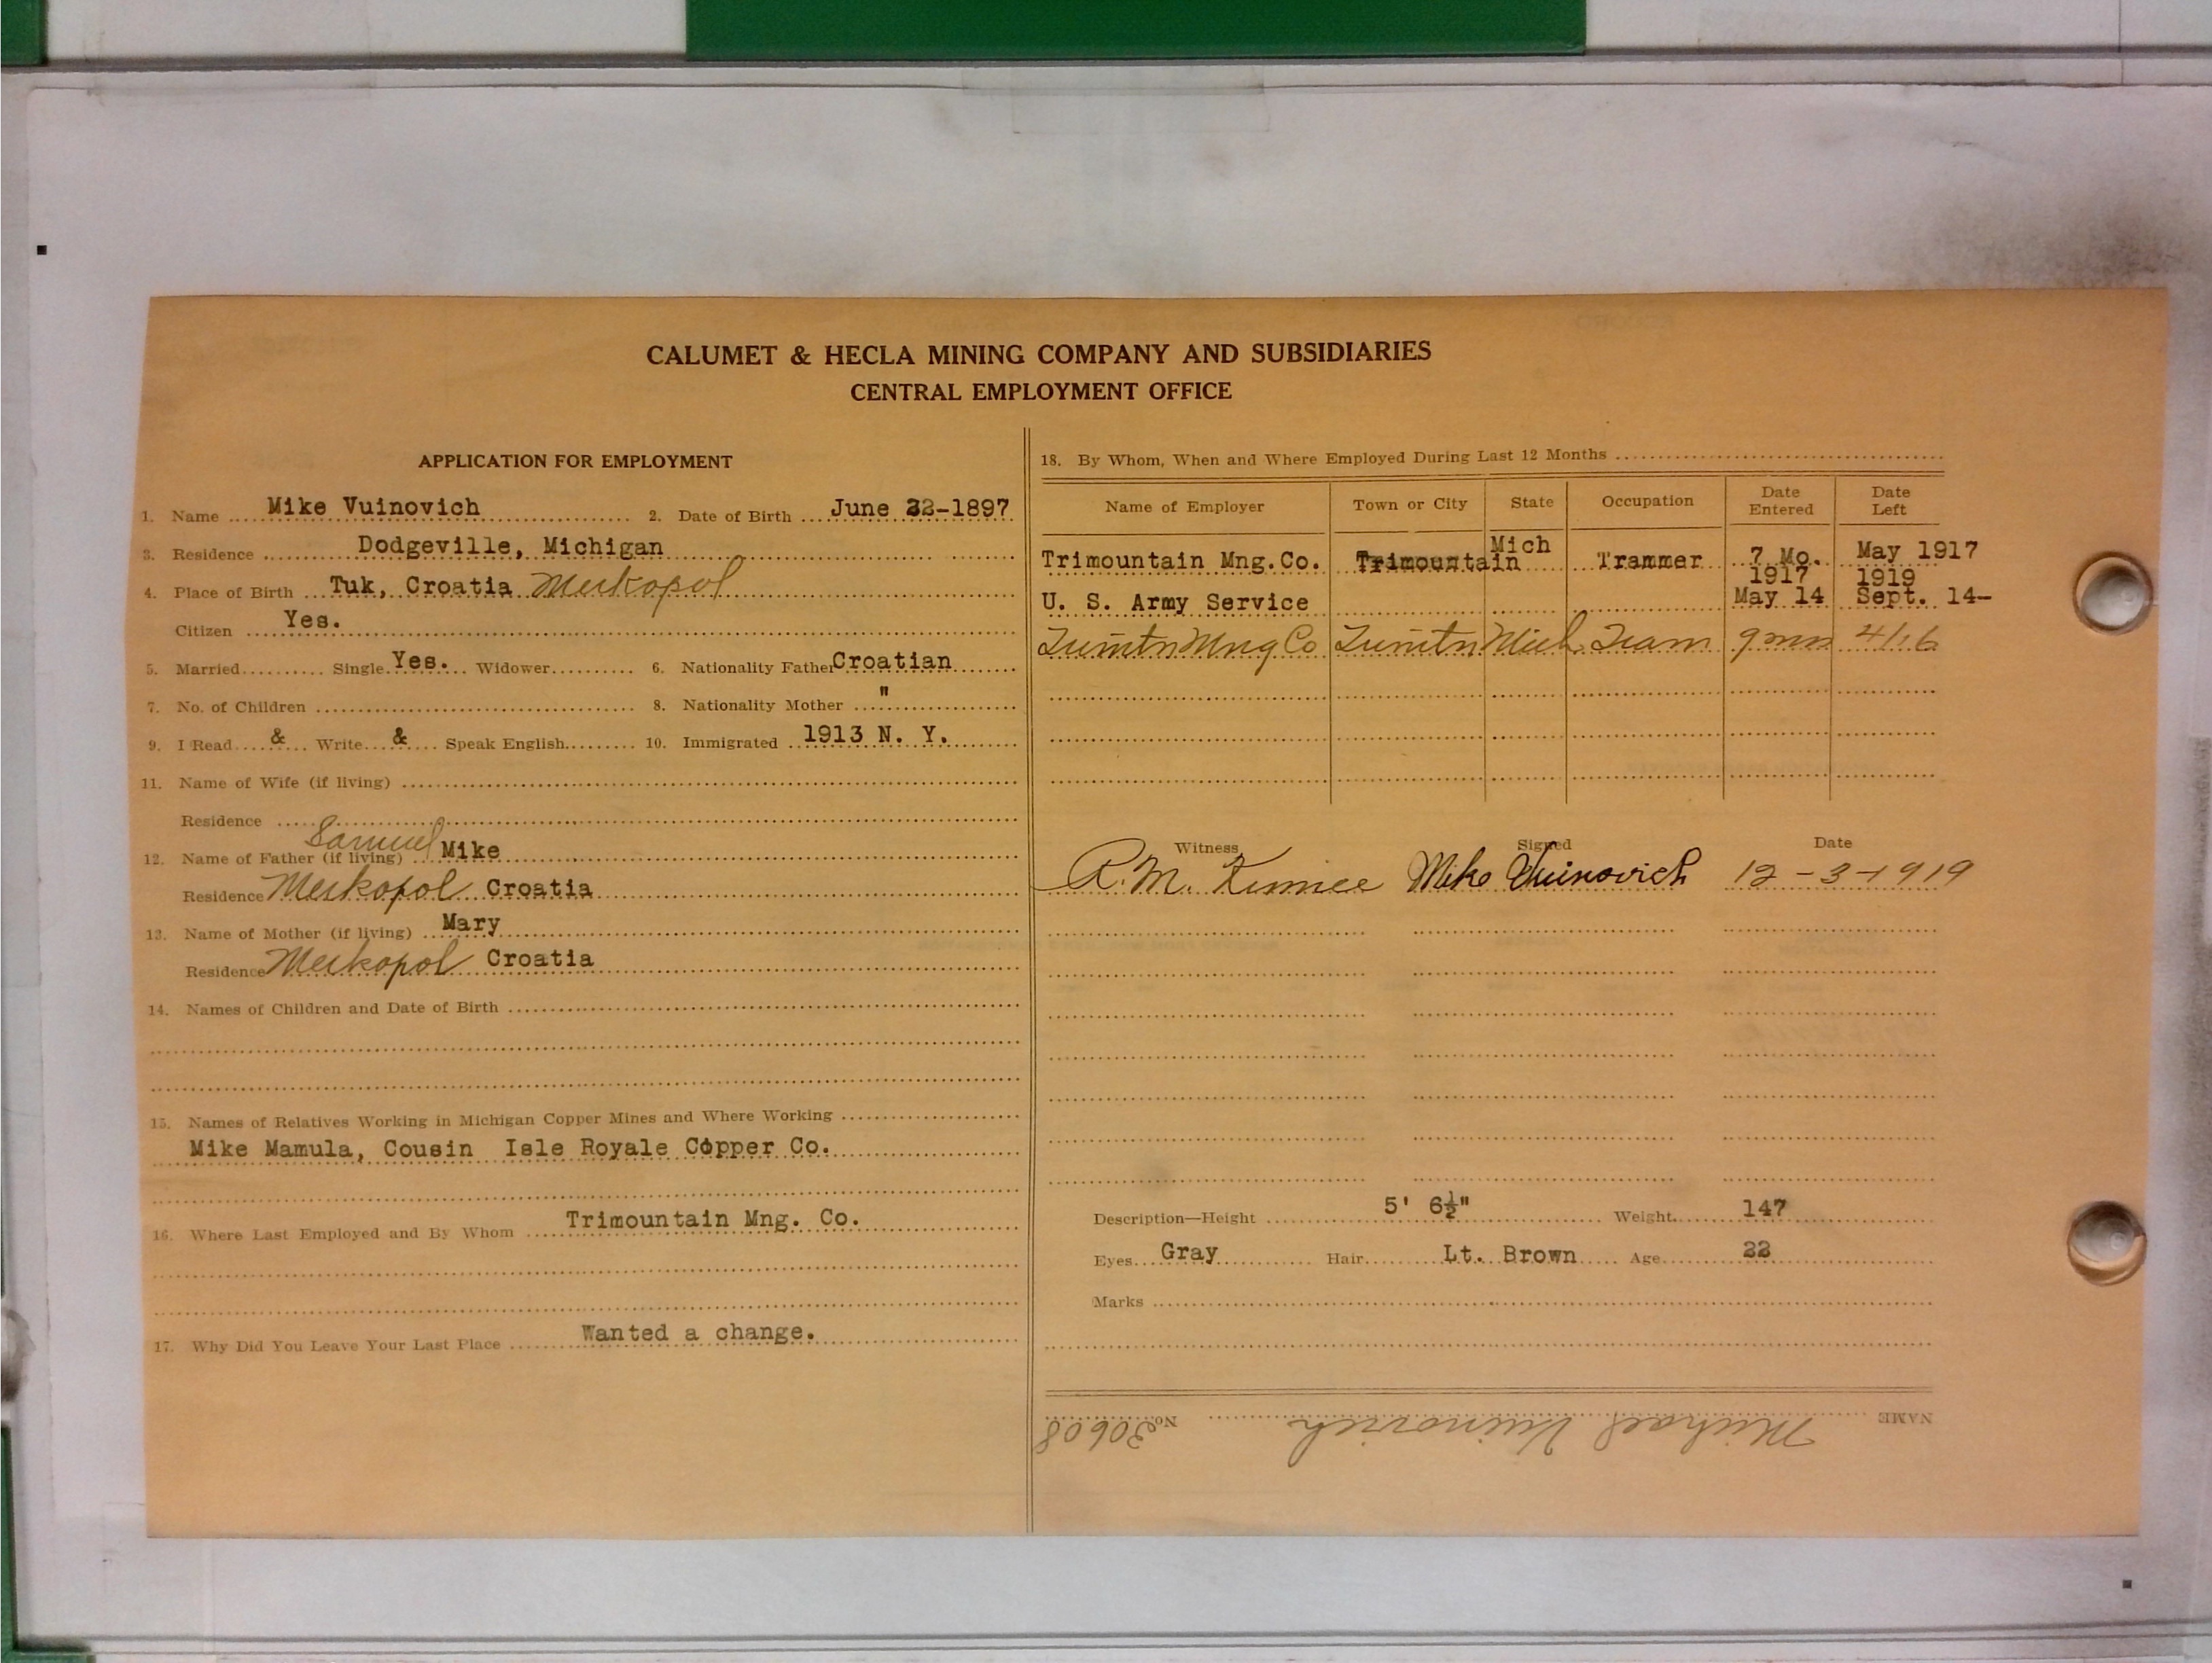 CALUMET & HECLA MINING COMPANY AND SUBSIDIARIES
CENTRAL EMPLOYMENT OFFICE
APPLICATION FOR EMPLOYMENT
1. Name Mike Vuinovich 2. Date of Birth June 22-1897
3. Residence Dodgeville, Michigan
4. Place of Birth Tuk, Croatia Merkopol
Citizen Yes.
5. Married Single Yes. Widower 6. Nationality Father Croatian
7. No. of Children 8. Nationality Mother "
9. I Read & Write & Speak English 10. Immigrated 1913 N. Y.
11. Name of Wife (if living)
Residence
12. Name of Father (if living) Samuel Mike
Residence Merkopol Croatia
13. Name of Mother (if living) Mary
Residence Merkopol Croatia
14. Names of Children and Date of Birth
15. Names of Relatives Working in Michigan Copper Mines and Where Working
Mike Mamula, Cousin Isle Royale Copper Co.
16. Where Last Employed and By Whom Trimountain Mng. Co.
17. Why Did You Leave Your Last Place Wanted a change.
18. By Whom, When and Where Employed During Last 12 Months
Name of Employer Town or City State Occupation Date Entered Date Left
Trimountain Mng.Co. Trimountain Mich Trammer 7 Mo. May 1917
1917 1919
U. S. Army Service May 14 Sept. 14-
Trimtn Mng Co Trimtn Mich Tram
Witness Signed Date
R.M. Mike Vuinovich 12-3-1919
Description—Height 5' 6½" Weight 147
Eyes Gray Hair Lt. Brown Age 22
Marks
NAME Michael Vuinovich No. 30608